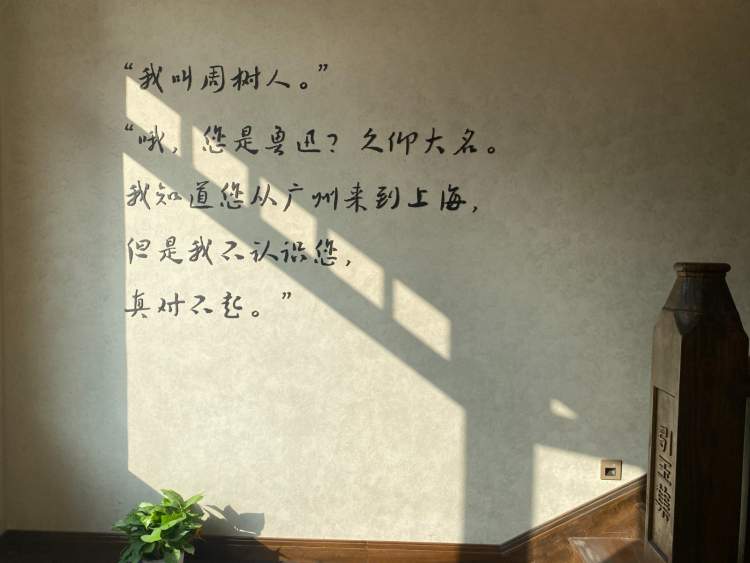 “我叫周树人。”
“哦，您是鲁迅？久仰大名。
我知道您从广州来到上海，
但是我不认识您，
真对不起。”